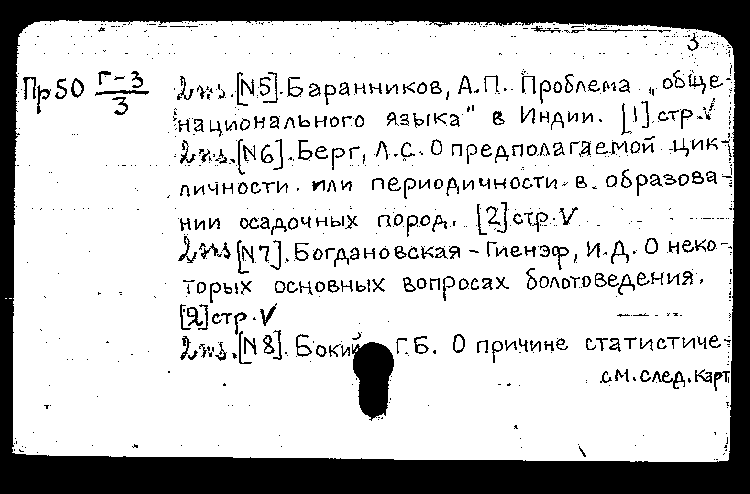 3
Пр50 Г-3/3 2 экз. [N5]. Баранников, А.П. Проблема „обще-
национального языка" в Индии. [1] стр. V
2 экз. [N6]. Берг, Л.С. О предполагаемой цик-
личности или периодичности в образова-
нии осадочных пород. [2] стр. V
2 экз [N7]. Богдановская-Гиенэф, И.Д. О неко-
торых основных вопросах болотоведения.
[2] стр. V
2 экз. [N8]. Бокий Г.Б. О причине статистиче-
см. след. карт